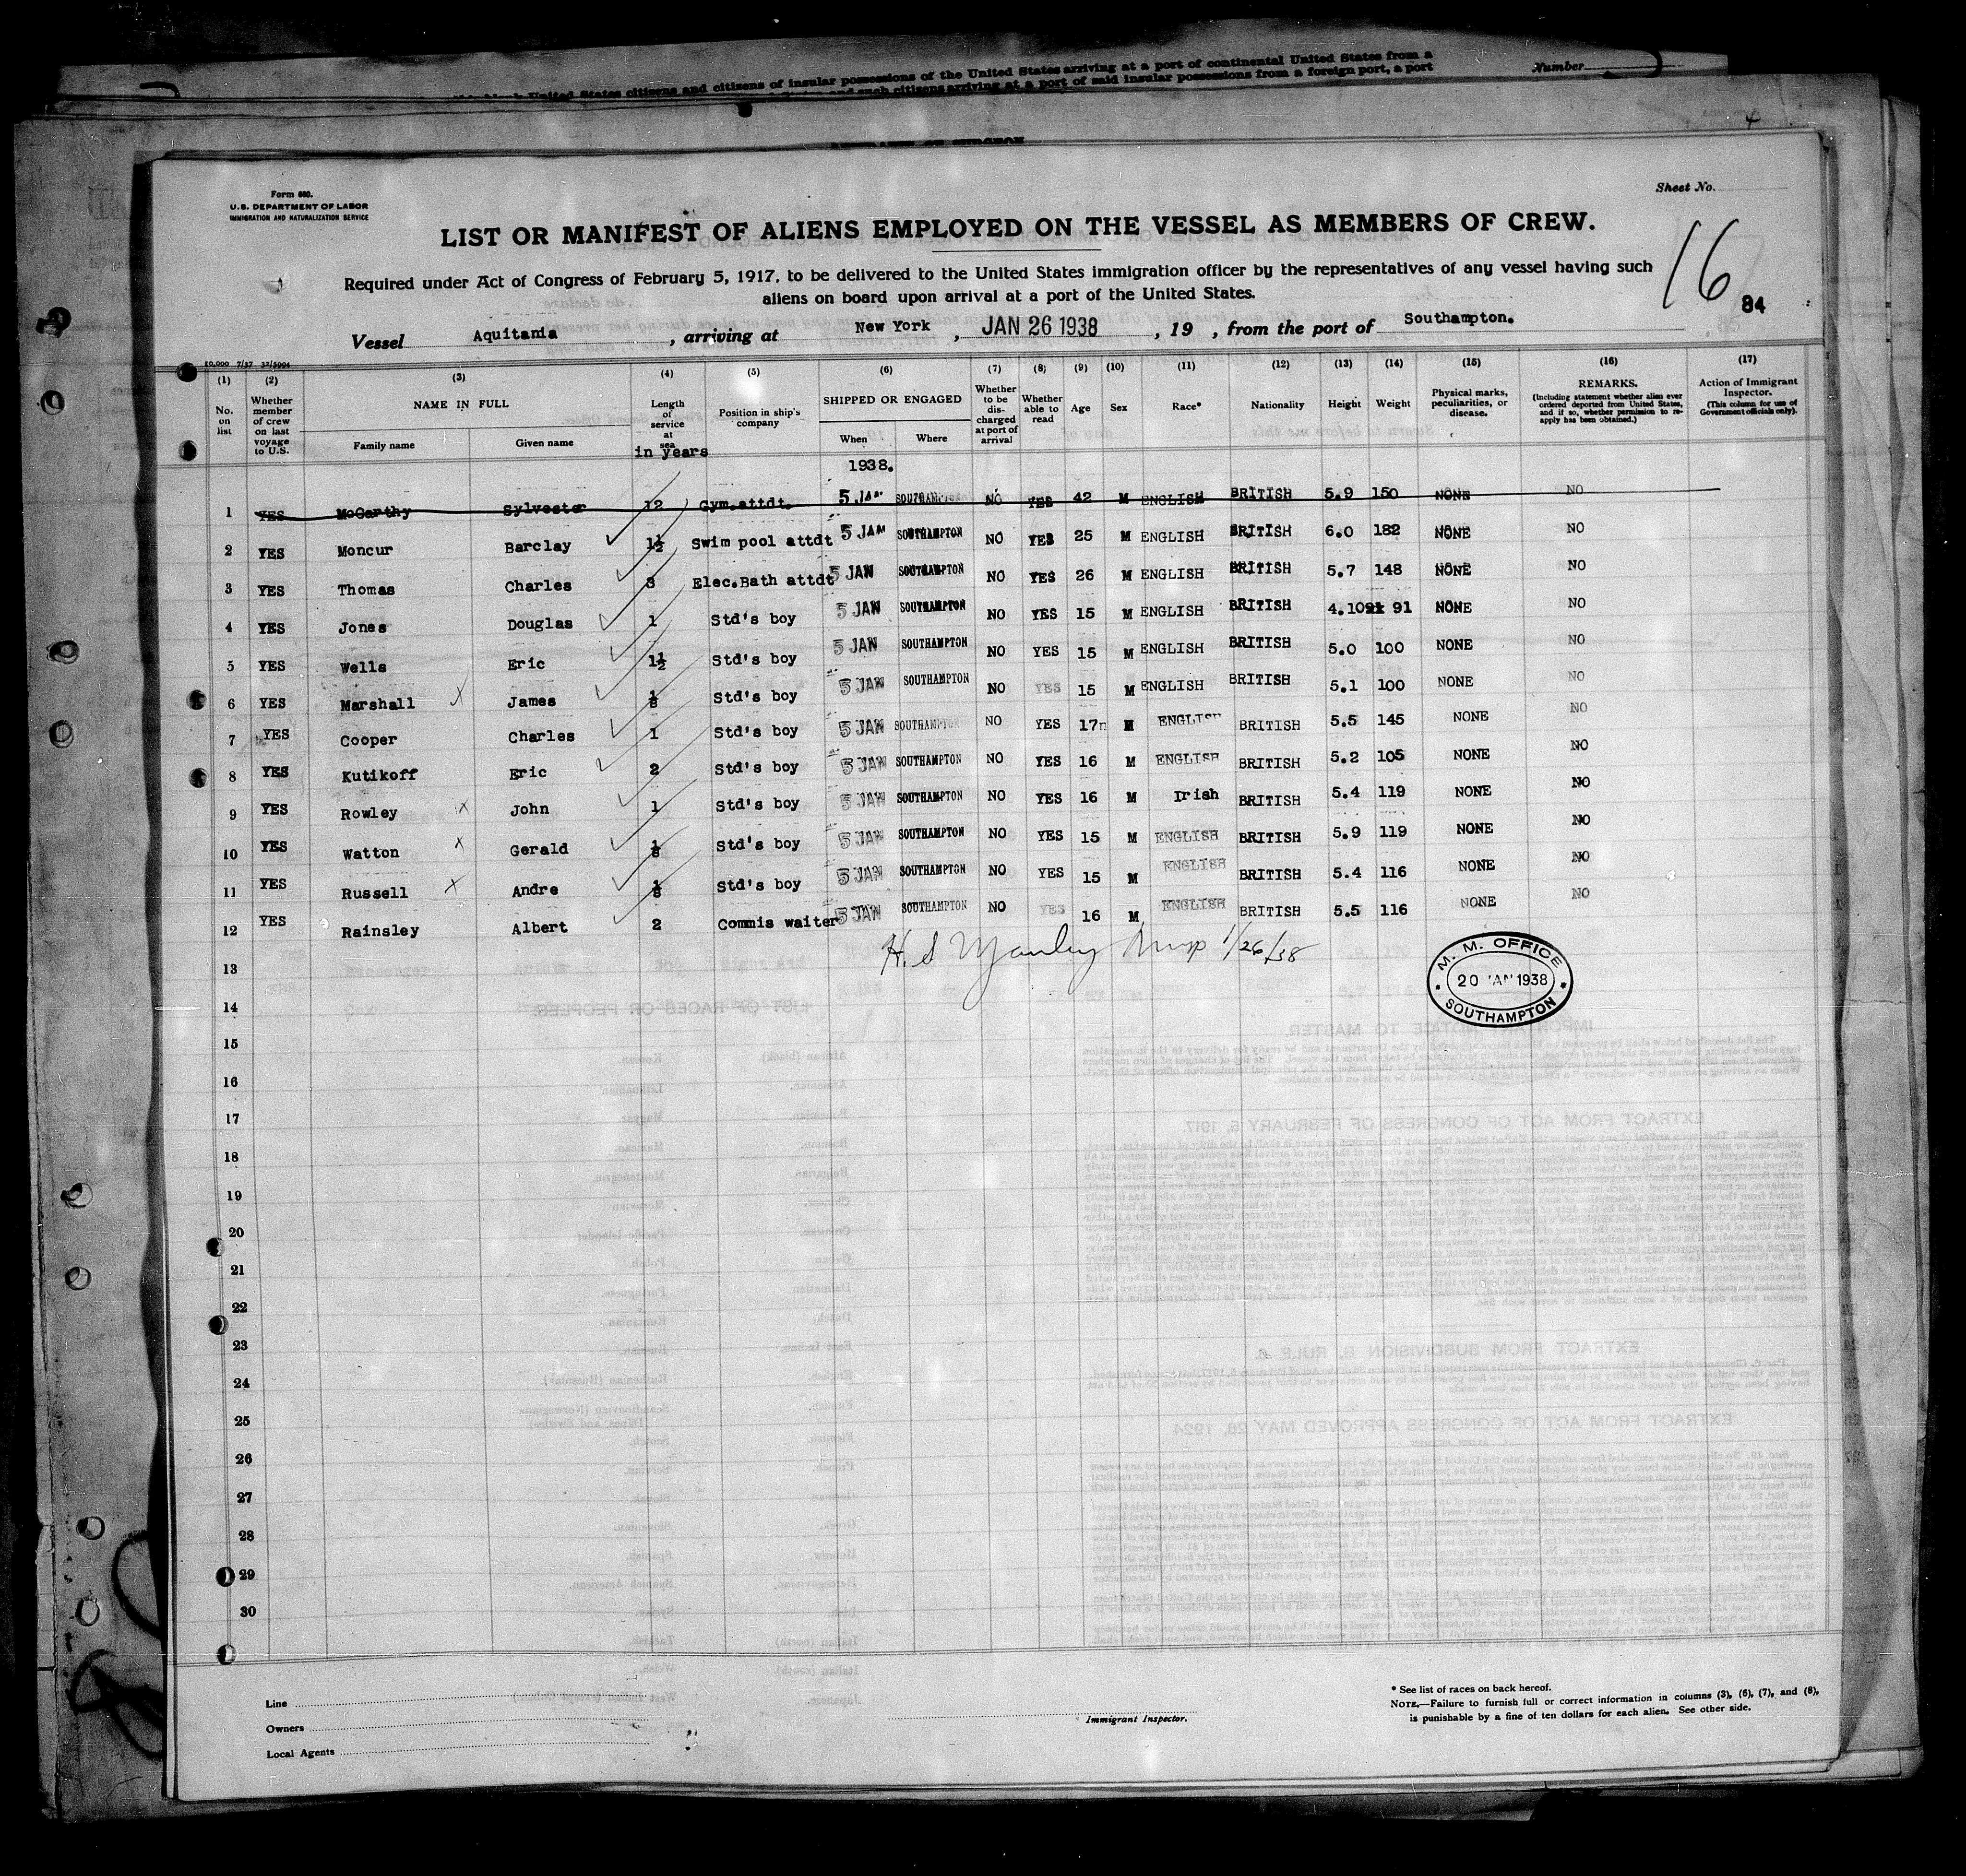 insular possessions of the United States citizens and citizens of insular possessions of the United States arriving at a port of continental United States from a
and such citizens arriving at a port of said insular possessions from a foreign port, a port
Number
Form 680.
U.S. DEPARTMENT OF LABOR
IMMIGRATION AND NATURALIZATION SERVICE
Sheet No.
LIST OR MANIFEST OF ALIENS EMPLOYED ON THE VESSEL AS MEMBERS OF CREW.
16
84
Required under Act of Congress of February 5, 1917, to be delivered to the United States immigration officer by the representatives of any vessel having such
aliens on board upon arrival at a port of the United States.
Vessel Aquitania, arriving at New York, JAN 26 1938, 19 , from the port of Southampton.
10,000 7/37 32/5994
(1) (2) (3) (4) (5) (6) (7) (8) (9) (10) (11) (12) (13) (14) (15) (16) (17)
No. on list
Whether member of crew on last voyage to U.S.
NAME IN FULL
Family name
Given name
Length of service at sea in years
Position in ship's company
SHIPPED OR ENGAGED
When
Where
Whether to be discharged at port of arrival
Whether able to read
Age
Sex
Race*
Nationality
Height
Weight
Physical marks, peculiarities, or disease.
REMARKS.
(Including statement whether alien ever ordered deported from United States, and if so, whether permission to reapply has been obtained.)
Action of Immigrant Inspector.
(This column for use of Government officials only).
1938.
1 YES McCarthy Sylvester 12 Gym.attdt. 5 JAN SOUTHAMPTON NO YES 42 M ENGLISH BRITISH 5.9 150 NONE NO
2 YES Moncur Barclay 1½ Swim pool attdt 5 JAN SOUTHAMPTON NO YES 25 M ENGLISH BRITISH 6.0 182 NONE NO
3 YES Thomas Charles 3 Elec.Bath attdt 5 JAN SOUTHAMPTON NO YES 26 M ENGLISH BRITISH 5.7 148 NONE NO
4 YES Jones Douglas 1 Std's boy 5 JAN SOUTHAMPTON NO YES 15 M ENGLISH BRITISH 4.10 91 NONE NO
5 YES Wells Eric 1½ Std's boy 5 JAN SOUTHAMPTON NO YES 15 M ENGLISH BRITISH 5.0 100 NONE NO
6 YES Marshall X James ⅛ Std's boy 5 JAN SOUTHAMPTON NO YES 15 M ENGLISH BRITISH 5.1 100 NONE NO
7 YES Cooper Charles 1 Std's boy 5 JAN SOUTHAMPTON NO YES 17 M ENGLISH BRITISH 5.5 145 NONE NO
8 YES Kutikoff Eric 2 Std's boy 5 JAN SOUTHAMPTON NO YES 16 M ENGLISH BRITISH 5.2 105 NONE NO
9 YES Rowley X John 1 Std's boy 5 JAN SOUTHAMPTON NO YES 16 M Irish BRITISH 5.4 119 NONE NO
10 YES Watton X Gerald ⅛ Std's boy 5 JAN SOUTHAMPTON NO YES 15 M ENGLISH BRITISH 5.9 119 NONE NO
11 YES Russell X Andre ⅛ Std's boy 5 JAN SOUTHAMPTON NO YES 15 M ENGLISH BRITISH 5.4 116 NONE NO
12 YES Rainsley Albert 2 Commis waiter 5 JAN SOUTHAMPTON NO YES 16 M ENGLISH BRITISH 5.5 116 NONE NO
H. S Manley 1/26/38
M. M. OFFICE
20 JAN 1938
SOUTHAMPTON
13
14
15
16
17
18
19
20
21
22
23
24
25
26
27
28
29
30
Line
Owners
Local Agents
Immigrant Inspector.
* See list of races on back hereof.
NOTE.—Failure to furnish full or correct information in columns (3), (6), (7), and (8), is punishable by a fine of ten dollars for each alien. See other side.